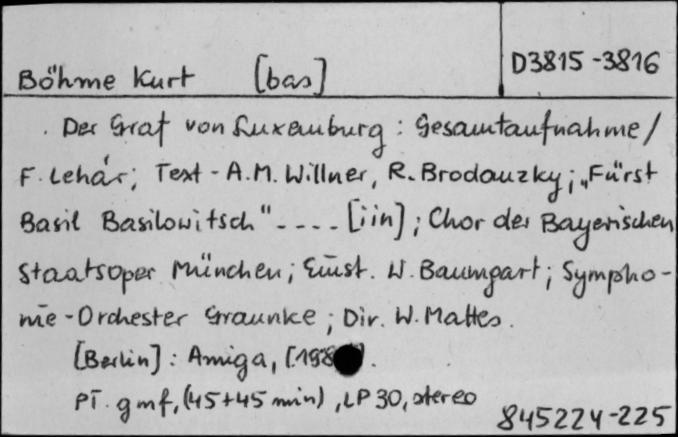 Böhme Kurt [bas] D3815-3816
. Der Graf von Luxemburg : Gesamtaufnahme /
F. Lehár; Text - A.M. Willner, R. Brodauzky; „Fürst
Basil Basilowitsch" - - - - [i in] ; Chor der Bayerischen
Staatsoper München; Einst. W. Baumgart; Sympho-
nie-Orchester Graunke ; Dir. W. Mattes.
[Berlin] : Amiga, [198 ].
PŤ. gmf, (45+45 min), LP 30, stereo
845224-225